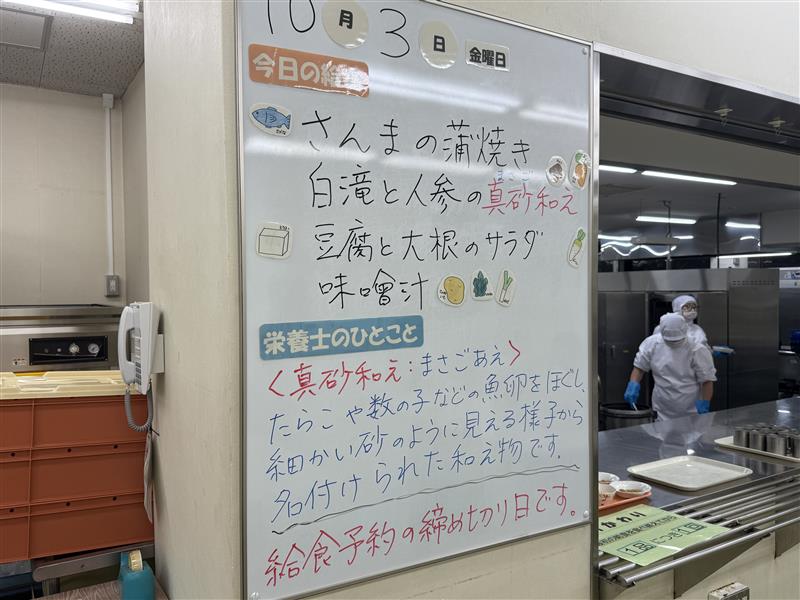 10月3日 金曜日
今日の給食
さんまの蒲焼き
まさご
白滝と人参の真砂和え
豆腐と大根のサラダ
味噌汁
栄養士のひとこと
〈真砂和え:まさごあえ〉
たらこや数の子などの魚卵をほぐし、
細かい砂のように見える様子から
名付けられた和え物です。
給食予約の締め切り日です。
かわり
1回につき1個